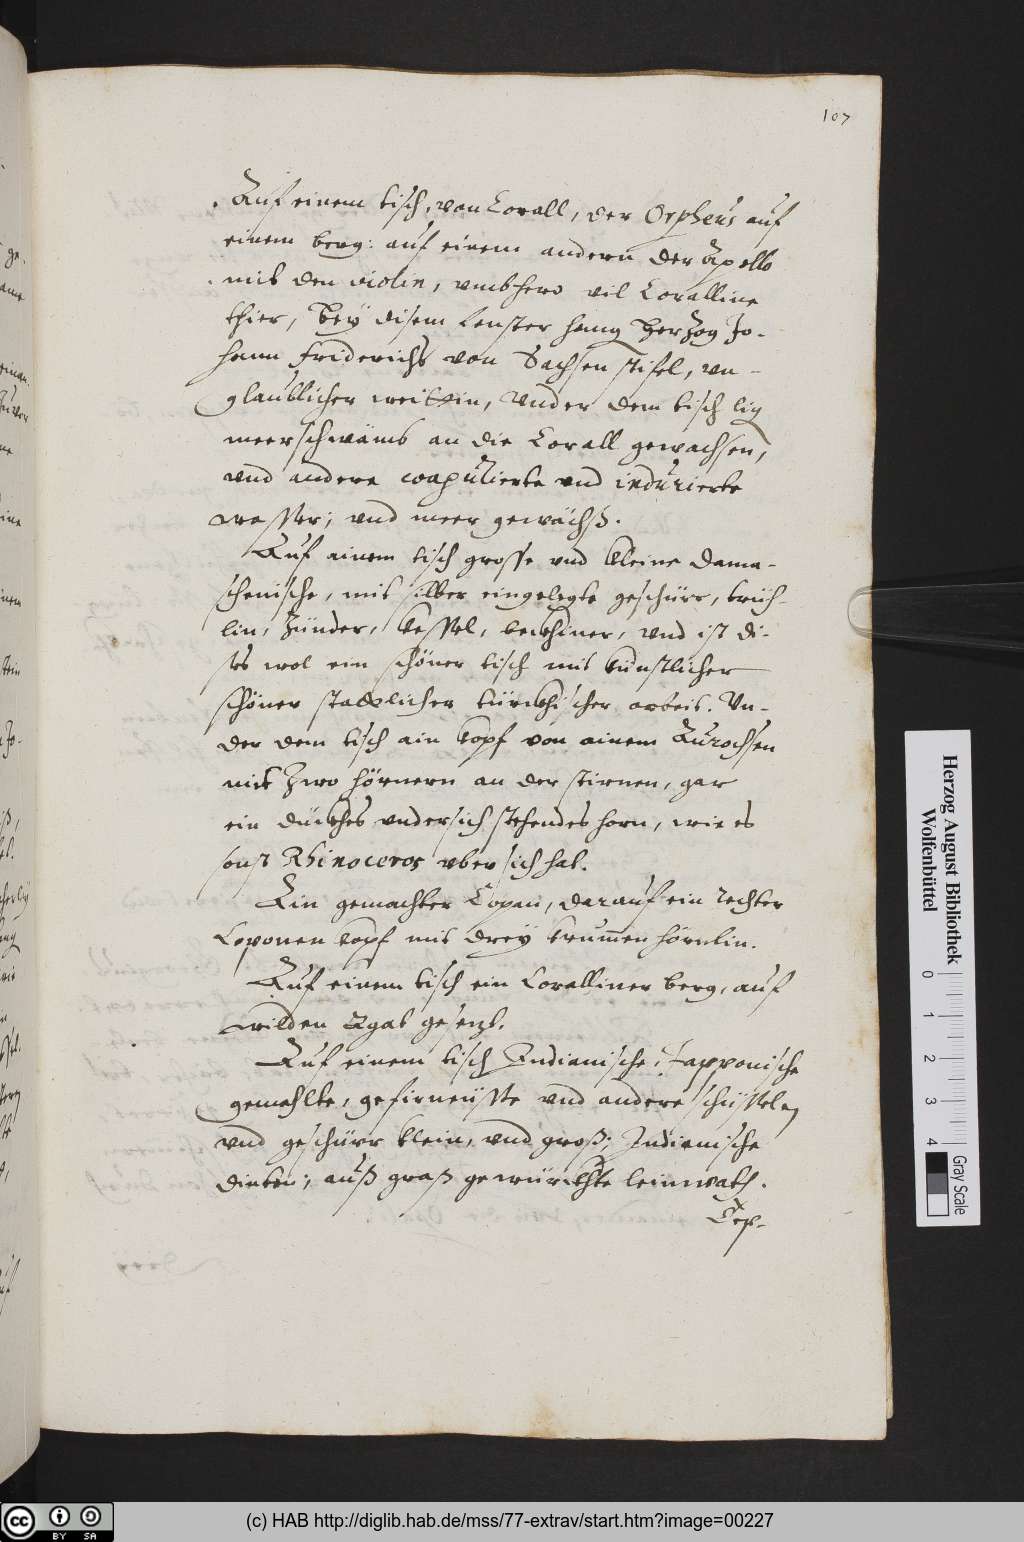 107
Auf einem tisch, von Corall, der Orpheus auf
einem berg: auf einem andern der Apollo
mit den violin, vmbhero vil Coralline
thier, Beÿ disem fenster hang Herzog Jo-
hann Friderichs von Sachsen stifel, vn-
glaublicher weittin, Vnder dem tisch lig
meerschwäms an die Corall gewachsen,
vnd andere coagulierte vnd indurierte
wasser; vnd meer gewächß.
Auf ainem tisch grosse vnd kleine Dama-
schenische, mit silber eingelegte geschürr, krüeh-
lin, Zünder, kessel, beckhiner, vnd ist di-
ses wol ein schöner tisch mit künstlicher
schöner stattlicher türckhischer arbeit. Vn-
der dem tisch ain kopf von ainem Aurochsen
mit Zwo hörnern an der stirnen, gar
ein dückhes vndersich stehendes horn, wie es
sonst Rhinoceros vber sich hat.
Ein gemachter Copan, darauf ein rechter
Coponen kopf mit dreÿ krummen hörnlin.
Auf einem tisch ein Coralliner berg, auf
wilden Agat gesezt.
Auf einem tisch Indianische, Japponische
gemahlte, gefirneüsste vnd andere schüsslen
vnd geschürr klein, vnd groß; Indianische
dinten; auß graß gewürckhte leinwath.
Tep-
Herzog August Bibliothek
Wolfenbüttel
0 1 2 3 4
Gray Scale
cc BY SA
(c) HAB http://diglib.hab.de/mss/77-extrav/start.htm?image=00227